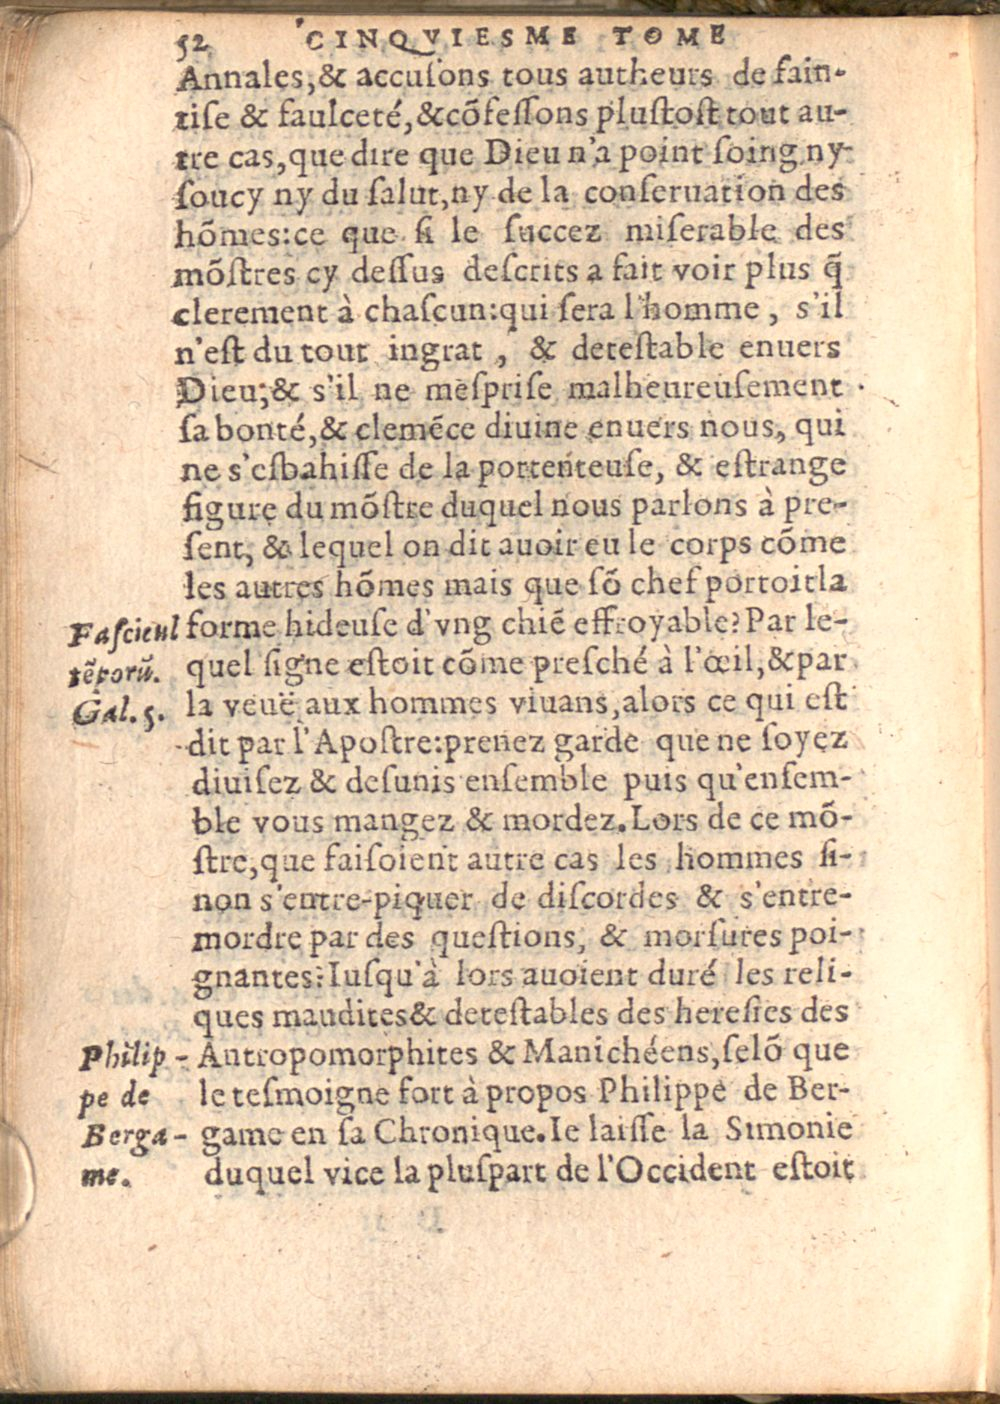 52 CINQVIESME TOME
Annales,& accuſons tous autheurs de fain-
tiſe & faulceté,&cõfeſſons pluſtoſt tout au-
tre cas,que dire que Dieu n'a point ſoing ny
ſoucy ny du ſalut,ny de la conſeruation des
hõmes:ce que ſi le ſuccez miſerable des
mõſtres cy deſſus deſcrits a fait voir plus q̃
clerement à chaſcun:qui ſera l'homme, s'il
n'eſt du tout ingrat, & deteſtable enuers
Dieu;& s'il ne meſpriſe malheureuſement
ſa bonté,& clemẽce diuine enuers nous, qui
ne s'eſbahiſſe de la portenteuſe, & eſtrange
figure du mõſtre duquel nous parlons à pre-
ſent, & lequel on dit auoir eu le corps cõme
les autres hõmes mais que ſõ chef portoit la
forme hideuſe d'vng chiẽ effroyable? Par le-
quel ſigne eſtoit cõme preſché à l'œil,& par
la veuë aux hommes viuans,alors ce qui eſt
dit par l'Apoſtre:prenez garde que ne ſoyez
diuiſez & deſunis enſemble puis qu'enſem-
ble vous mangez & mordez. Lors de ce mõ-
ſtre,que faiſoient autre cas les hommes ſi-
non s'entre-piquer de diſcordes & s'entre-
mordre par des queſtions, & morſures poi-
gnantes: Iuſqu'à lors auoient duré les reli-
ques maudites& deteſtables des hereſies des
Antropomorphites & Manichéens,ſelõ que
le teſmoigne fort à propos Philippe de Ber-
game en ſa Chronique. Ie laiſſe la Simonie
duquel vice la pluſpart de l'Occident eſtoit
Faſcicul
tẽporũ.
Gal. 5.
Philip-
pe de
Berga-
me.